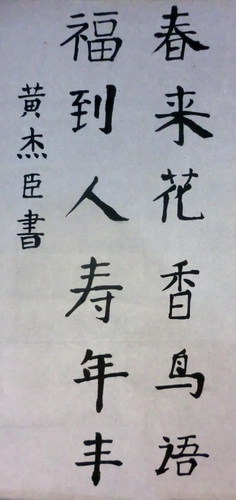 春来花香鸟语
福到人寿年丰
黄杰臣書